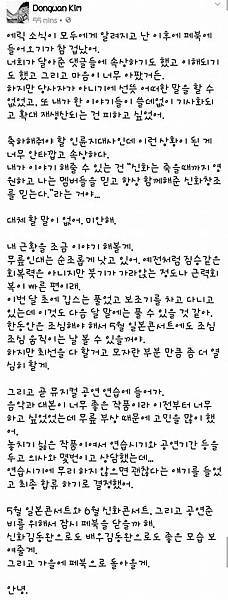 Dongwan Kim
55 mins
에릭 소식이 모두에게 알려지고 난 이후에 페북에
들어오기가 참 겁났어.
너희가 달아준 댓글들에 속상하기도 했고 이해되기
도 했고 그리고 마음이 너무 아팠거든.
하지만 당사자가 아니기에 선뜻 어떠한 말을 할 수
없었고, 또 내가 한 이야기들이 쓸데없이 기사화되
고 확대 재생산되는 건 피하고 싶었어.
축하해줘야 할 인륜지대사인데 이런 상황이 된 게
너무 안타깝고 속상하다.
내가 이야기 해줄 수 있는 건 “신화는 죽을때까지 영
원하고 나는 멤버들을 믿고 항상 함께해준 신화창조
를 믿는다.”라는 거야...
대체 할 말이 없어. 미안해.
내 근황을 조금 이야기 해볼게.
무릎 인대는 순조롭게 낫고 있어. 예전처럼 짐승같은
회복력은 아니지만 붓기가 가라앉는 정도나 근력회
복이 빠른 편이래.
이번 달 초에 깁스는 풀었고 보조기를 차고 다니고
있는데 이것도 다음 달 에는 풀 수 있을 것 같아.
한동안은 조심해야 해서 5월 일본콘서트에도 조심
조심 움직이는 날 볼 수 있을꺼야.
하지만 최선을 다 할거고 모자란 부분 만큼 좀 더 열
심히 할게.
그리고 곧 뮤지컬 공연 연습에 들어가.
음악과 대본이 너무 좋은 작품이라 이전부터 너무
하고 싶었었는데 무릎 부상 때문에 고민을 많이 했
어.
놓치기 싫은 작품이여서 연습시기와 공연기간 등을
두고 의사와 몇번이고 상담했는데...
연습시기에 무리 하지않으면 괜찮다는 얘기를 들었
고 최종 합류 하기로 결정했어.
5월 일본콘서트와 6월 신화콘서트, 그리고 공연준
비를 위해서 잠시 페북을 닫을까 해.
신화김동완으로도 배우김동완으로도 좋은 모습 보
여줄게.
그리고 가을에 페북으로 돌아올게.
안녕.